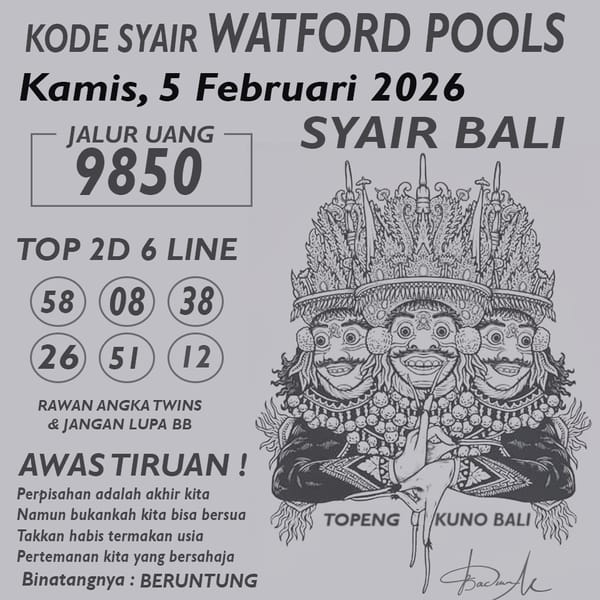 KODE SYAIR WATFORD POOLS
Kamis, 5 Februari 2026
SYAIR BALI
JALUR UANG
9850
TOP 2D 6 LINE
58 08 38
26 51 12
RAWAN ANGKA TWINS
& JANGAN LUPA BB
AWAS TIRUAN !
Perpisahan adalah akhir kita
Namun bukankah kita bisa bersua
Takkan habis termakan usia
Pertemanan kita yang bersahaja
Binatangnya : BERUNTUNG
TOPENG KUNO BALI